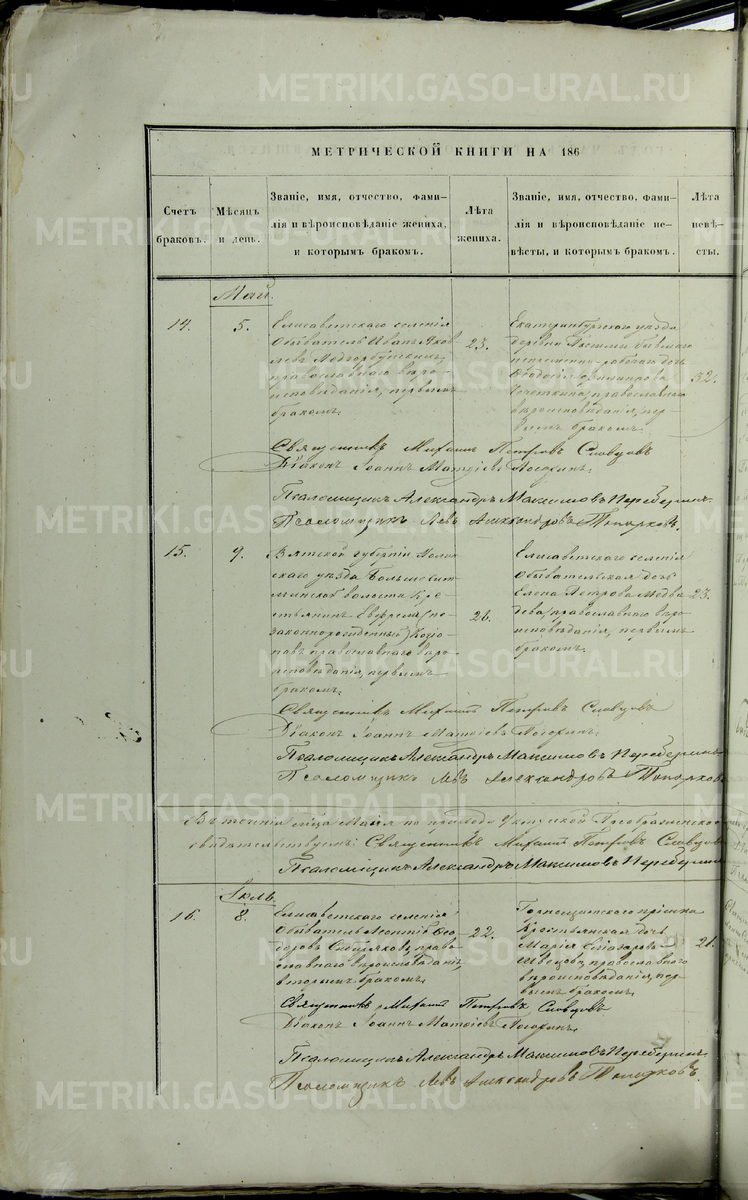 METRIKI.GASO-URAL.RU
МЕТРИЧЕСКОЙ КНИГИ НА 186
Счетъ браковъ.
Мѣсяцъ и день.
Званіе, имя, отчество, фами-
лія и вѣроисповѣданіе жениха,
и которымъ бракомъ.
Лѣта жениха.
Званіе, имя, отчество, фами-
лія и вѣроисповѣданіе не-
вѣсты, и которымъ бракомъ.
Лѣта невѣ-
сты.
Май.
14.
5.
Елисаветскаго селенія
Обыватель Иванъ Яков-
левъ
православнаго вѣро-
исповѣданія, первымъ
бракомъ.
23.
Екатеринбургскаго уѣзда
деревни бывшаго
рабочаго дочь
Ѳеодосія
православнаго
вѣроисповѣданія, пер-
вымъ бракомъ.
32.
Священникъ Михаилъ Петровъ Словцовъ
Діаконъ Іоаннъ
Псаломщикъ Александръ Максимовъ
Псаломщикъ Левъ Александровъ Топорковъ.
15.
9.
Вятской губерніи Нолин-
скаго уѣзда
волости Кре-
стьянинъ Ефремъ (не-
законнорожденный)
православнаго вѣро-
исповѣданія, первымъ
бракомъ.
26.
Елисаветскаго селенія
Обывательская дочь
Елена Петрова Медвѣ-
дева, православнаго вѣро-
исповѣданія, первымъ
бракомъ.
23.
Священникъ Михаилъ Петровъ Словцовъ
Діаконъ Іоаннъ
Псаломщикъ Александръ Максимовъ
Псаломщикъ Левъ Александровъ Топорковъ
Въ теченіи м-ца Мая по приходу Уктусской Преображенской
свидѣтельствуемъ: Священникъ Михаилъ Петровъ Словцовъ
Псаломщикъ Александръ Максимовъ
Іюль.
16.
8.
Елисаветскаго селенія
Обыватель Леонтій Ѳео-
доровъ право-
славнаго вѣроисповѣданія,
вторымъ бракомъ.
22.
Горнощитскаго пріиска
Крестьянская дочь
Марія
православнаго
вѣроисповѣданія, пер-
вымъ бракомъ.
21.
Священникъ Михаилъ Петровъ Словцовъ
Діаконъ Іоаннъ
Псаломщикъ Александръ Максимовъ
Псаломщикъ Левъ Александровъ Топорковъ.